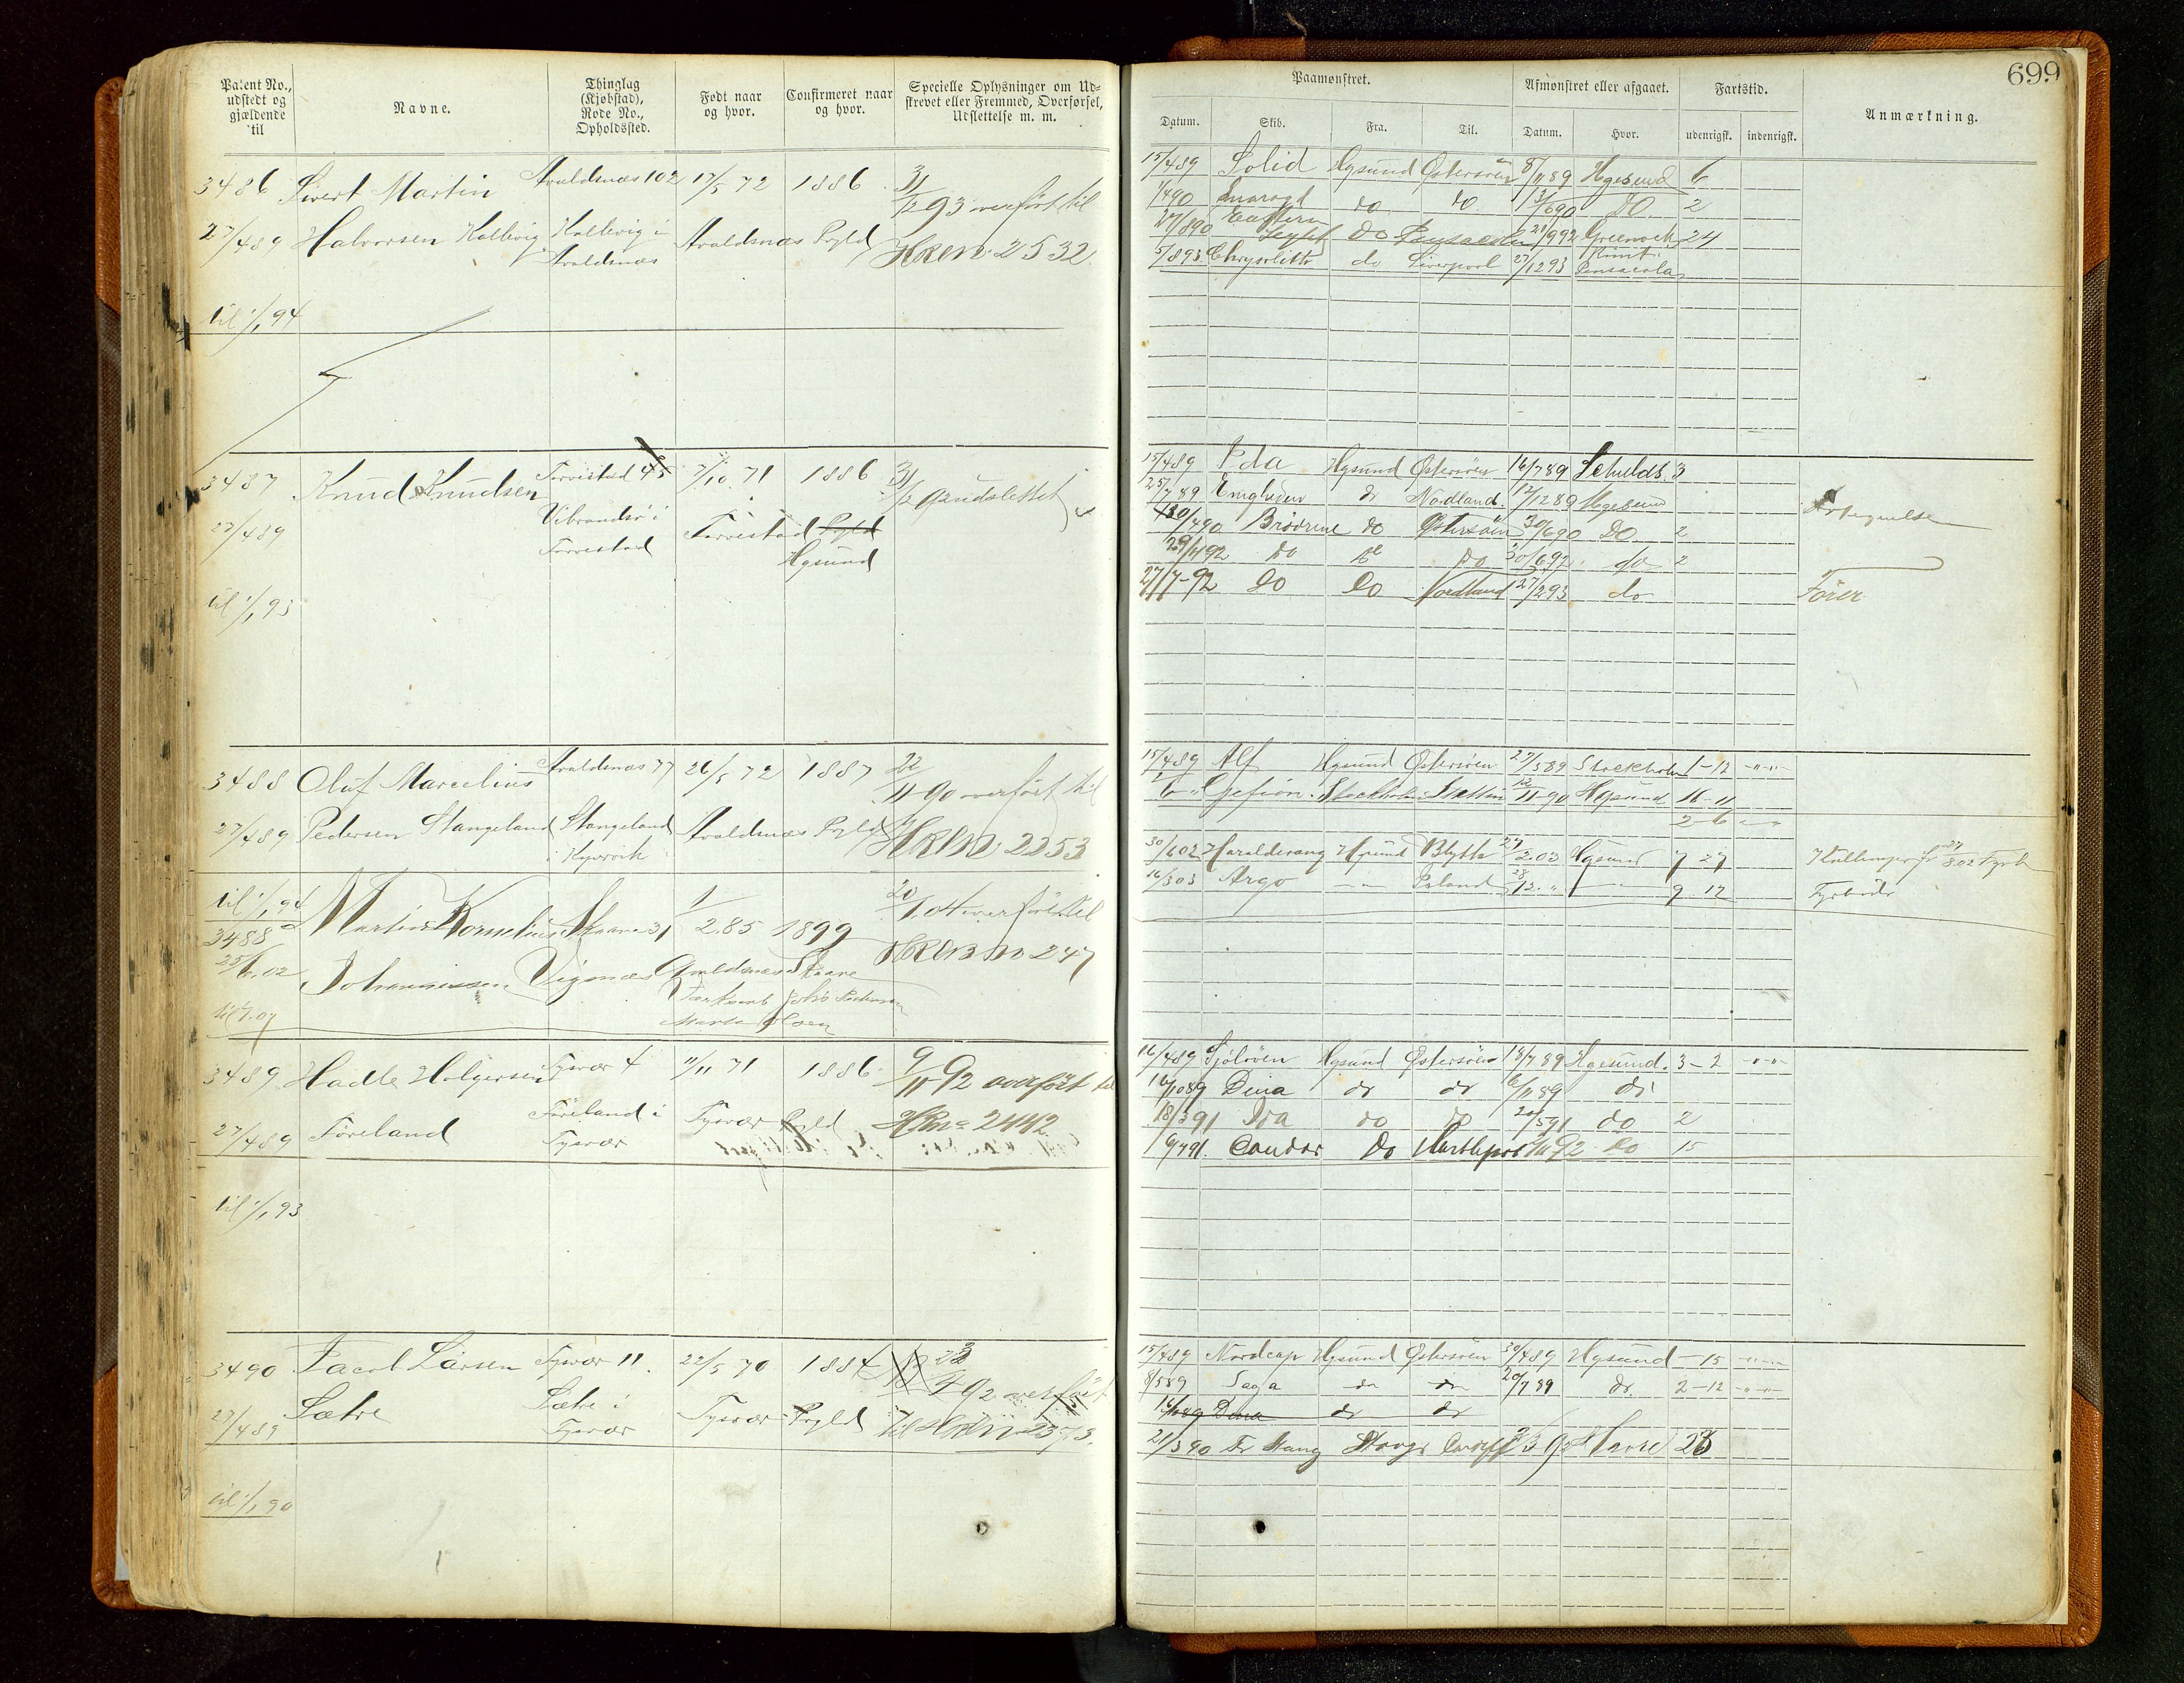 Patent No., udstedt og gjældende til
Navne.
Thinglag (Kjøbstad), Rode No., Opholdssted.
Født naar og hvor.
Confirmeret naar og hvor.
Specielle Oplysninger om Udskrevet eller Fremmed, Overførsel, Udslettelse m. m.
3486 Sivert Martin Avaldsnæs 102 17/5 72 1886 31/12 93 overført til
27/4 89 Halvorsen Kallevig Kallevig i Avaldsnæs Avaldsnæs Pgld HRLN 2532
til 1/1 94
3487 Knud Knudsen Torvestad 45 7/10 71 1886 31/12 92 udslettet
27/4 89 Vibrandsø i Torvestad Torvestad Pgld
Hgsund
til 1/1 93
3488 Oluf Marcelius Avaldsnæs 77 26/5 72 1887 22/11 90 overført til
27/4 89 Pedersen Stangeland Stangeland i Avaldsnæs Pgld HRLN 2253
til 1/1 94
3488 a Martin Kornelius Skaare 31 1/2.85 1899 20/1.04 overført til
25/6.02 Johannessen Vigsnæs Avaldsnæs Skaare 247
3489 Hadle Holgersen Tysvær 4 11/11 71 1886 9/11 92 overført til
27/4 89 Føreland Føreland i Tysvær Tysvær Pgld 2442
til 1/1 93
3490 Jacob Larsen Tysvær 11. 22/5 70 1884 23/4 92 overført
27/4 89 Sætre Sætre i Tysvær Tysvær Pgld til 2373.
til 1/1 90
699
Paamønstret.
Afmønstret eller afgaaet.
Fartstid.
Anmærkning.
Datum. Skib. Fra. Til. Datum. Hvor. udenrigsk. indenrigsk.
15/4 89 Solid Hgsund Østersøen 8/11 89 Hgesund 6
1/4 90 Smaragd do do 13/6 90 Do. 2
27/8 90 Eastern Light do Pensacola 21/9 92 Greenock 24
5/8 93 Chrysolitte do Liverpool 27/12 93 Rømt Pensacola
15/4 89 Ida Hgsund Østersøen 16/7 89 3
25/7 89 Enigheden do Nordland 12/12 89 Hgesund
30/4 90 Brødrene do Østersøen 30/6 90 Do 2
29/4 92 Do Do Do 30/6 92 do 2
27/7-92 Do Do Nordland 27/2 93 do Fører
15/4 89 Alf Hgsund Østersøen 27/5 89 Stockholm 1-12 -"-"-
Gefion Stockholm Stettin 12/11-90 Hgsund 16-11
2-6
30/6 02 Haraldsvang Hgsund Blyth 27/2.03 Hgsund 7 27
16/3 03 Argo -"- Island 28/12." -"- 9 12 Fyrbøder
16/4 89 Sjøløven Hgsund Østersøen 18/7 89 Hgesund. 3-2 -"-"-
16/10 89 Dina do do 6/11 89 do
18/3 91 Ida do do 20/5 91 do 2
Condor Do Hartlepool 92 Do 15
15/4 89 Nordcap Hgsund Østersøen 30/4 89 Hgsund -15 -"-"-
8/5 89 Saga do do 20/7 89 do 2-12 -"-"-
14/10 89 Dina do do
21/3 90 Fr Stang Cardiff Havre